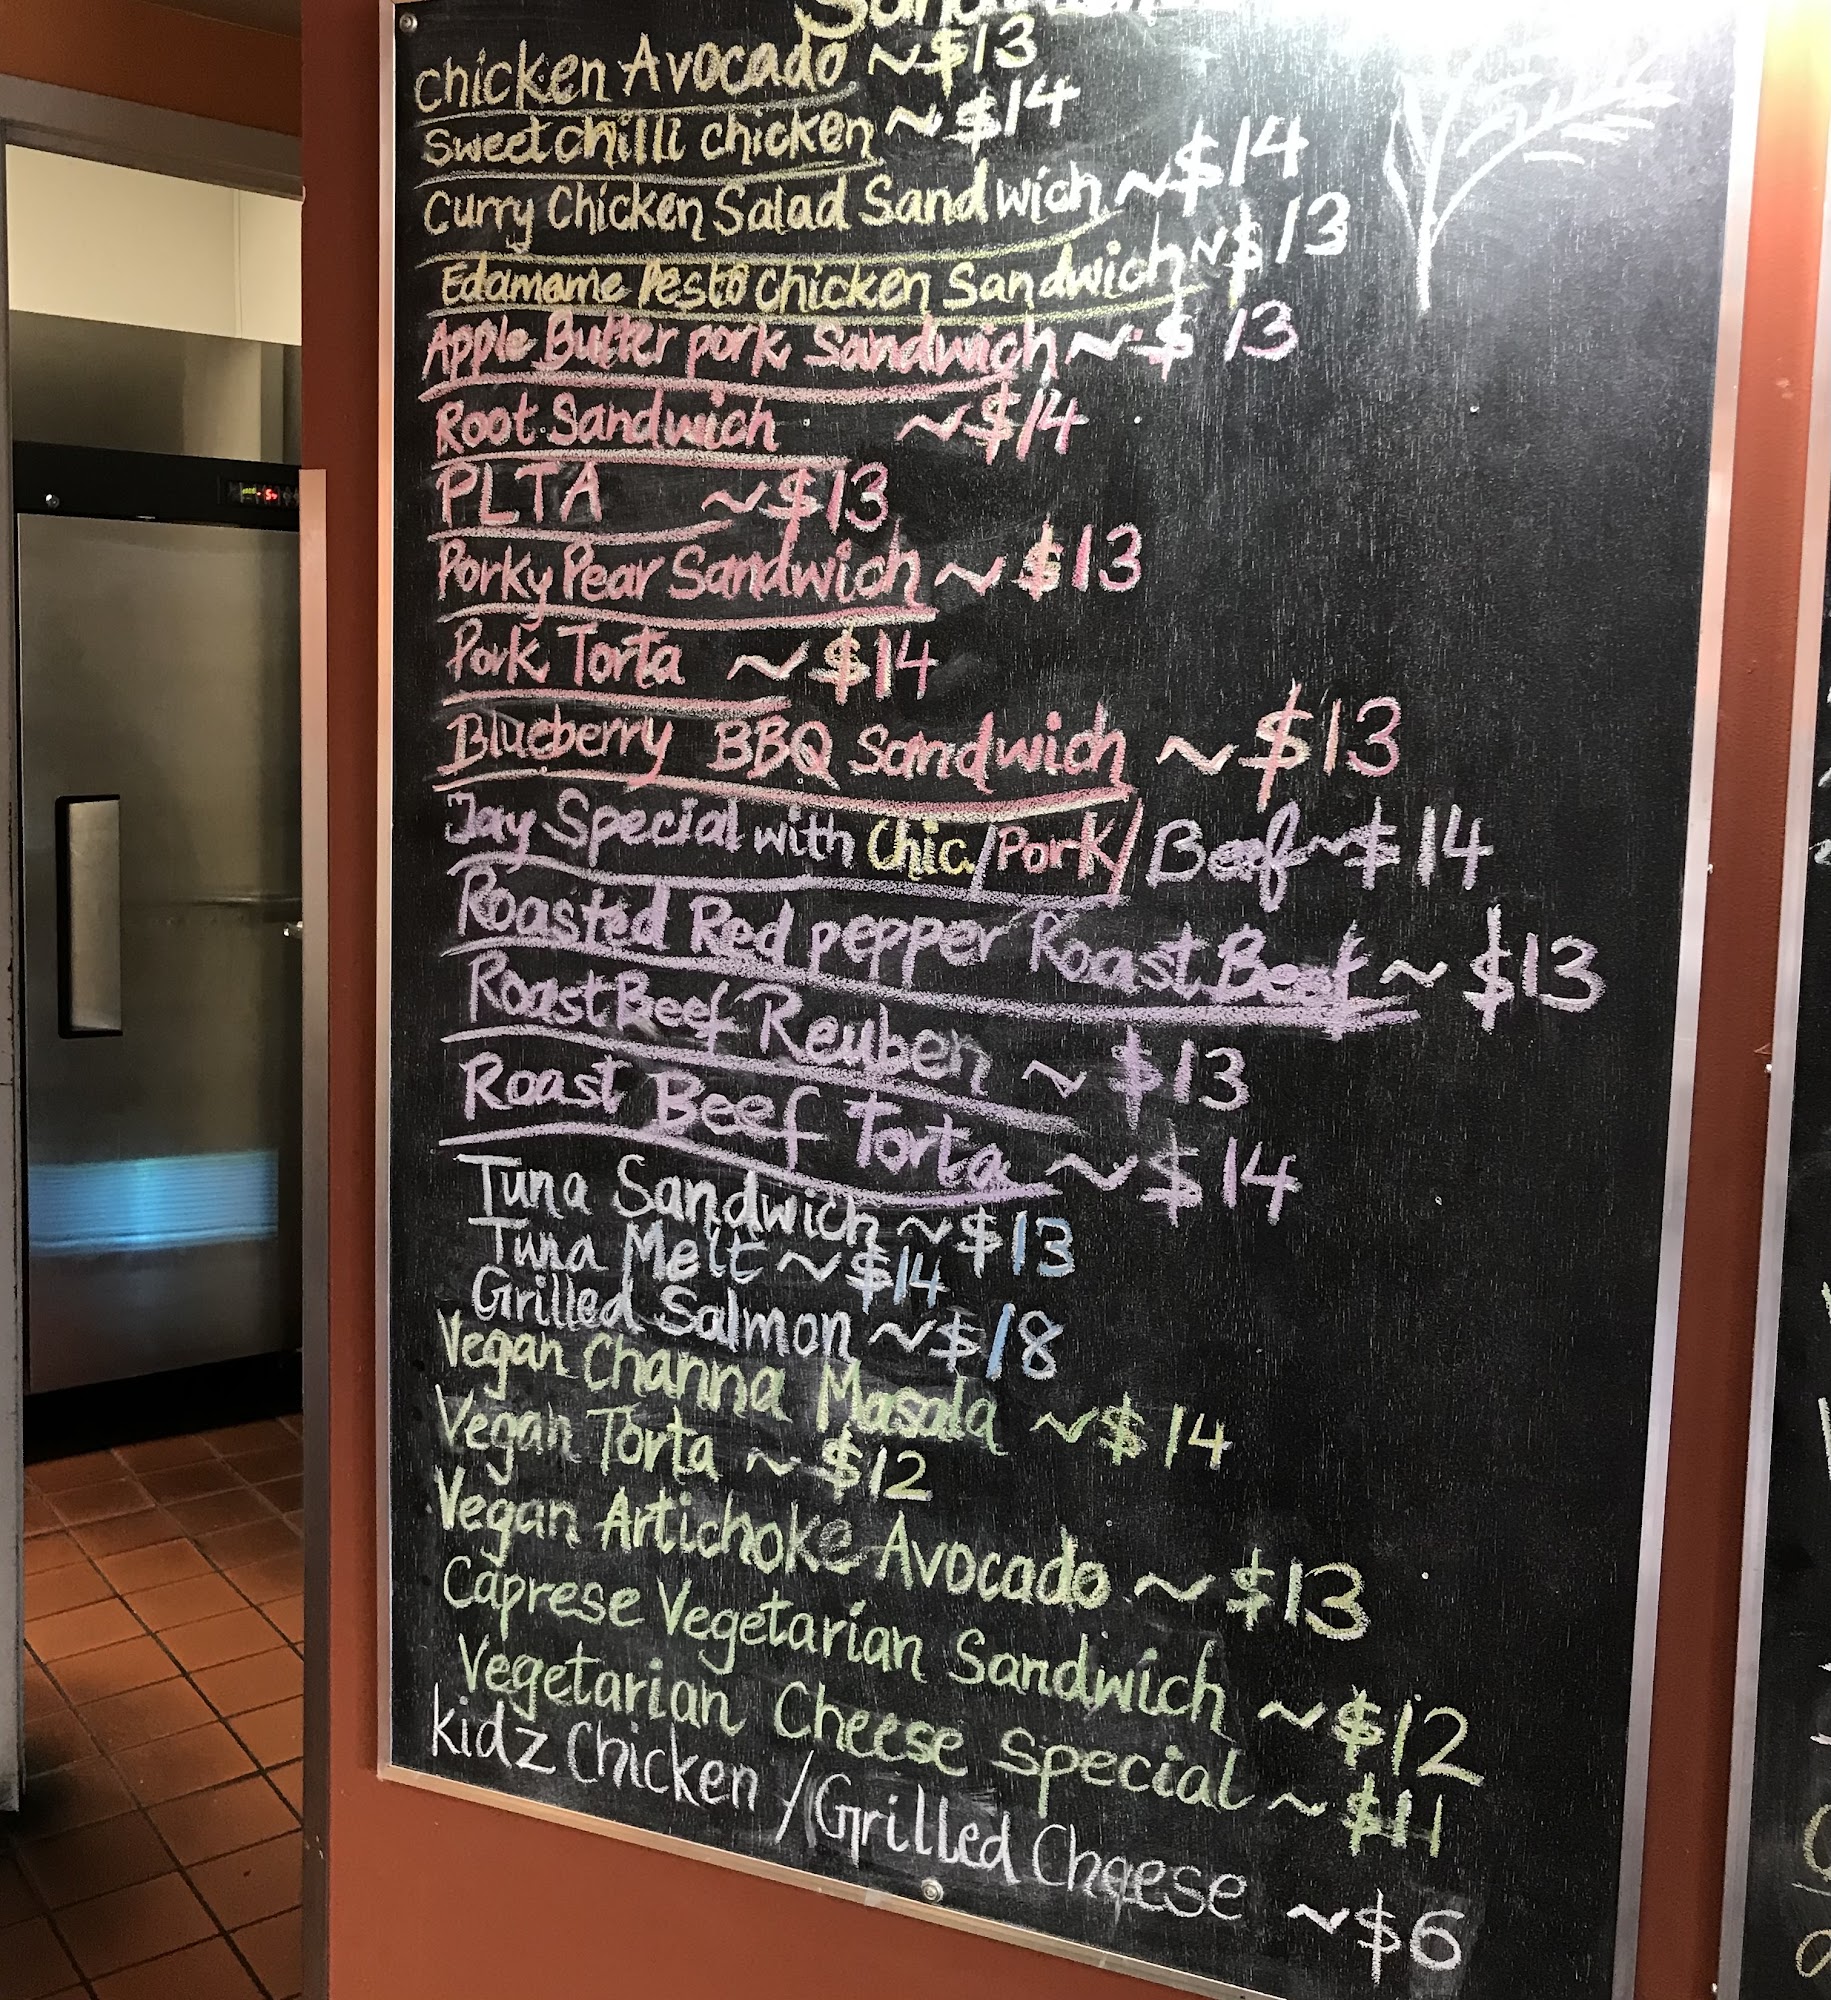 Chicken Avocado ~ $13
Sweet chilli chicken ~ $14
Curry Chicken Salad Sandwich ~ $14
Edamame Pesto Chicken Sandwich ~ $13
Apple Butter pork Sandwich ~ $13
Root Sandwich ~ $14
PLTA ~ $13
Porky Pear Sandwich ~ $13
Pork Torta ~ $14
Blueberry BBQ Sandwich ~ $13
Jay Special with Chic/Pork/Beef ~ $14
Roasted Red pepper Roast Beef ~ $13
Roast Beef Reuben ~ $13
Roast Beef Torta ~ $14
Tuna Sandwich ~ $13
Tuna Melt ~ $14
Grilled Salmon ~ $18
Vegan Channa Masala ~ $14
Vegan Torta ~ $12
Vegan Artichoke Avocado ~ $13
Caprese Vegetarian Sandwich ~ $12
Vegetarian Cheese Special ~ $11
Kidz Chicken / Grilled Cheese ~ $6